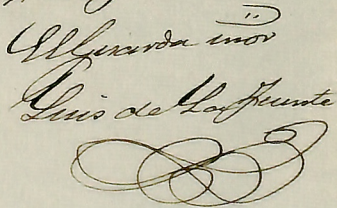 El Guarda mor
Luis de La Fuente